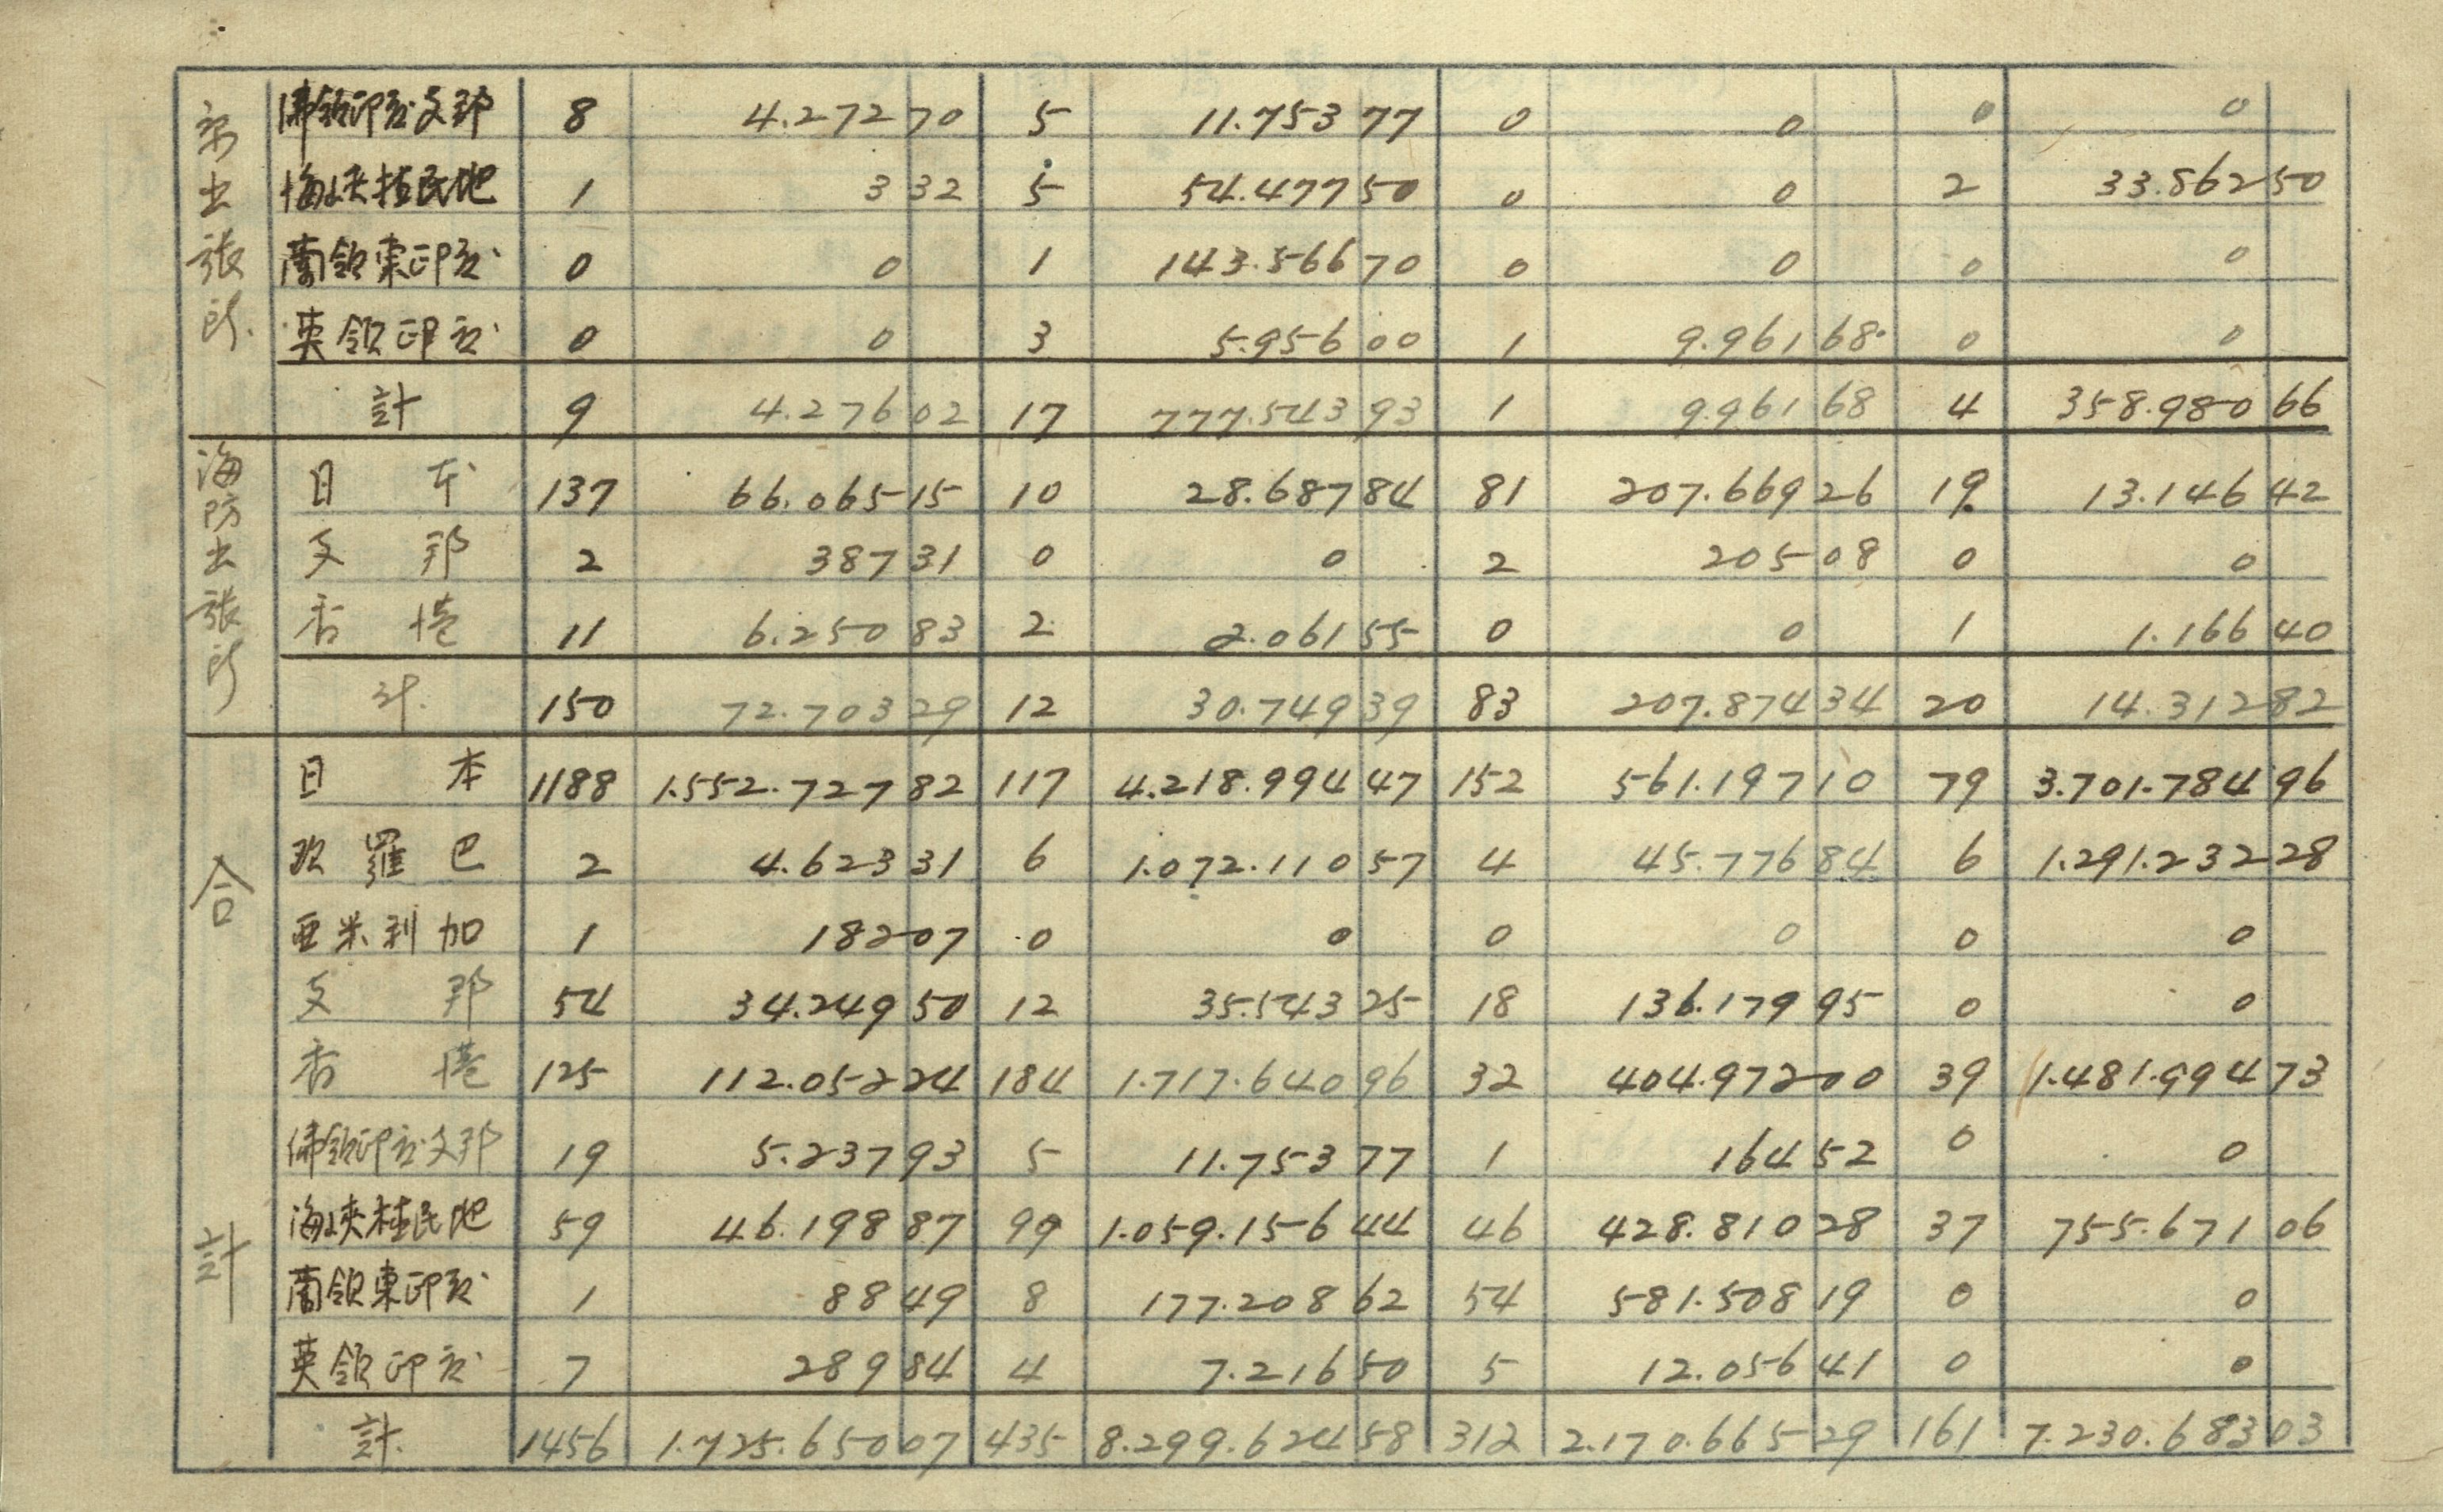 出張所 佛領印度支那 8 4.272 70 5 11.753 77 0 0 0 0
海峽植民地 1 3 32 5 54.477 50 0 0 2 33.862 50
蘭領東印度 0 0 1 143.566 70 0 0 0 0
英領印度 0 0 3 5.956 00 1 9.961 68 0 0
計 9 4.276 02 17 777.543 93 1 9.961 68 4 358.980 66
海防出張所 日本 137 66.065 15 10 28.687 84 81 207.669 26 19 13.146 42
支那 2 387 31 0 0 2 205 08 0 0
香港 11 6.250 83 2 2.061 55 0 0 1 1.166 40
計 150 72.703 29 12 30.749 39 83 207.874 34 20 14.312 82
合計 日本 1188 1.552.727 82 117 4.218.994 47 152 561.197 10 79 3.701.784 96
欧羅巴 2 4.623 31 6 1.072.110 57 4 45.776 84 6 1.291.232 28
亜米利加 1 182 07 0 0 0 0 0 0
支那 54 34.249 50 12 35.543 25 18 136.179 95 0 0
香港 125 112.052 24 184 1.717.640 96 32 404.972 00 39 1.481.994 73
佛領印度支那 19 5.237 93 5 11.753 77 1 164 52 0 0
海峽植民地 59 46.198 87 99 1.059.156 44 46 428.810 28 37 755.671 06
蘭領東印度 1 88 49 8 177.208 62 54 581.508 19 0 0
英領印度 7 289 84 4 7.216 50 5 12.056 41 0 0
計 1456 1.725.650 07 435 8.299.624 58 312 2.170.665 29 161 7.230.683 03